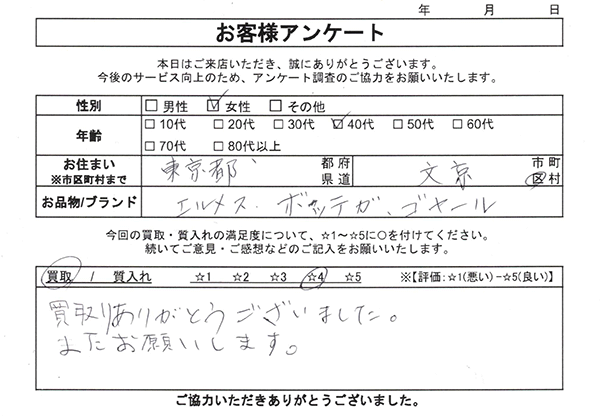 年 月 日
お客様アンケート
本日はご来店いただき、誠にありがとうございます。
今後のサービス向上のため、アンケート調査のご協力をお願いいたします。
性別 □ 男性 ☑ 女性 □ その他
年齢 □ 10代 □ 20代 □ 30代 ☑ 40代 □ 50代 □ 60代
□ 70代 □ 80代以上
お住まい ※市区町村まで 東京都 都府県道 文京 市町区村
お品物/ブランド エルメス、ボッテガ、ゴヤール
今回の買取・質入れの満足度について、☆1～☆5に○を付けてください。
続いてご意見・ご感想などのご記入をお願いいたします。
買取 / 質入れ ☆1 ☆2 ☆3 ☆4 ☆5 ※【評価:☆1(悪い)－☆5(良い)】
買取りありがとうございました。
またお願いします。
ご協力いただきありがとうございました。